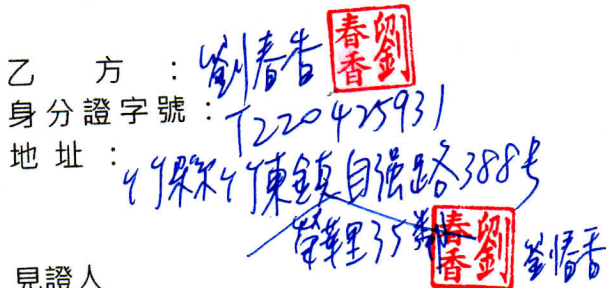 乙方：劉春香 劉春香
身分證字號：T220425931
地址：竹縣竹東鎮自強路388号
榮華里35鄰 劉春香 劉春香
見證人